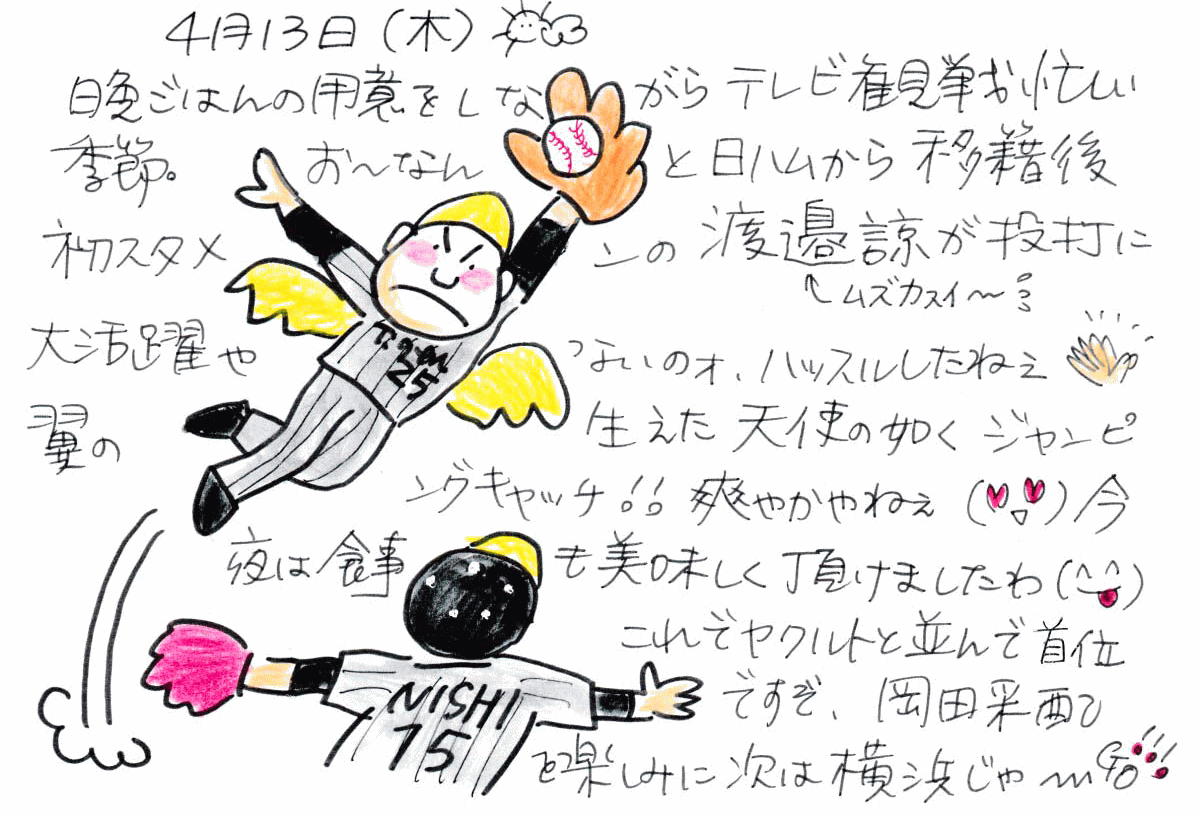 4月13日(木)
晩ごはんの用意をしながらテレビ観戦お忙しい
季節。お〜なんと日ハムから移籍後
初スタメンの渡邉諒が投打に
↑ムズカスイ〜
大活躍やつよいのォ、ハッスルしたねぇ
翼の生えた天使の如くジャンピ
ングキャッチ!!爽やかやねぇ()今
夜は食事も美味しく頂けましたわ(^^)
これでヤクルトと並んで首位
ですぞ、岡田采配
を楽しみに次は横浜じゃ〜GO!!!
25
NISHI
15